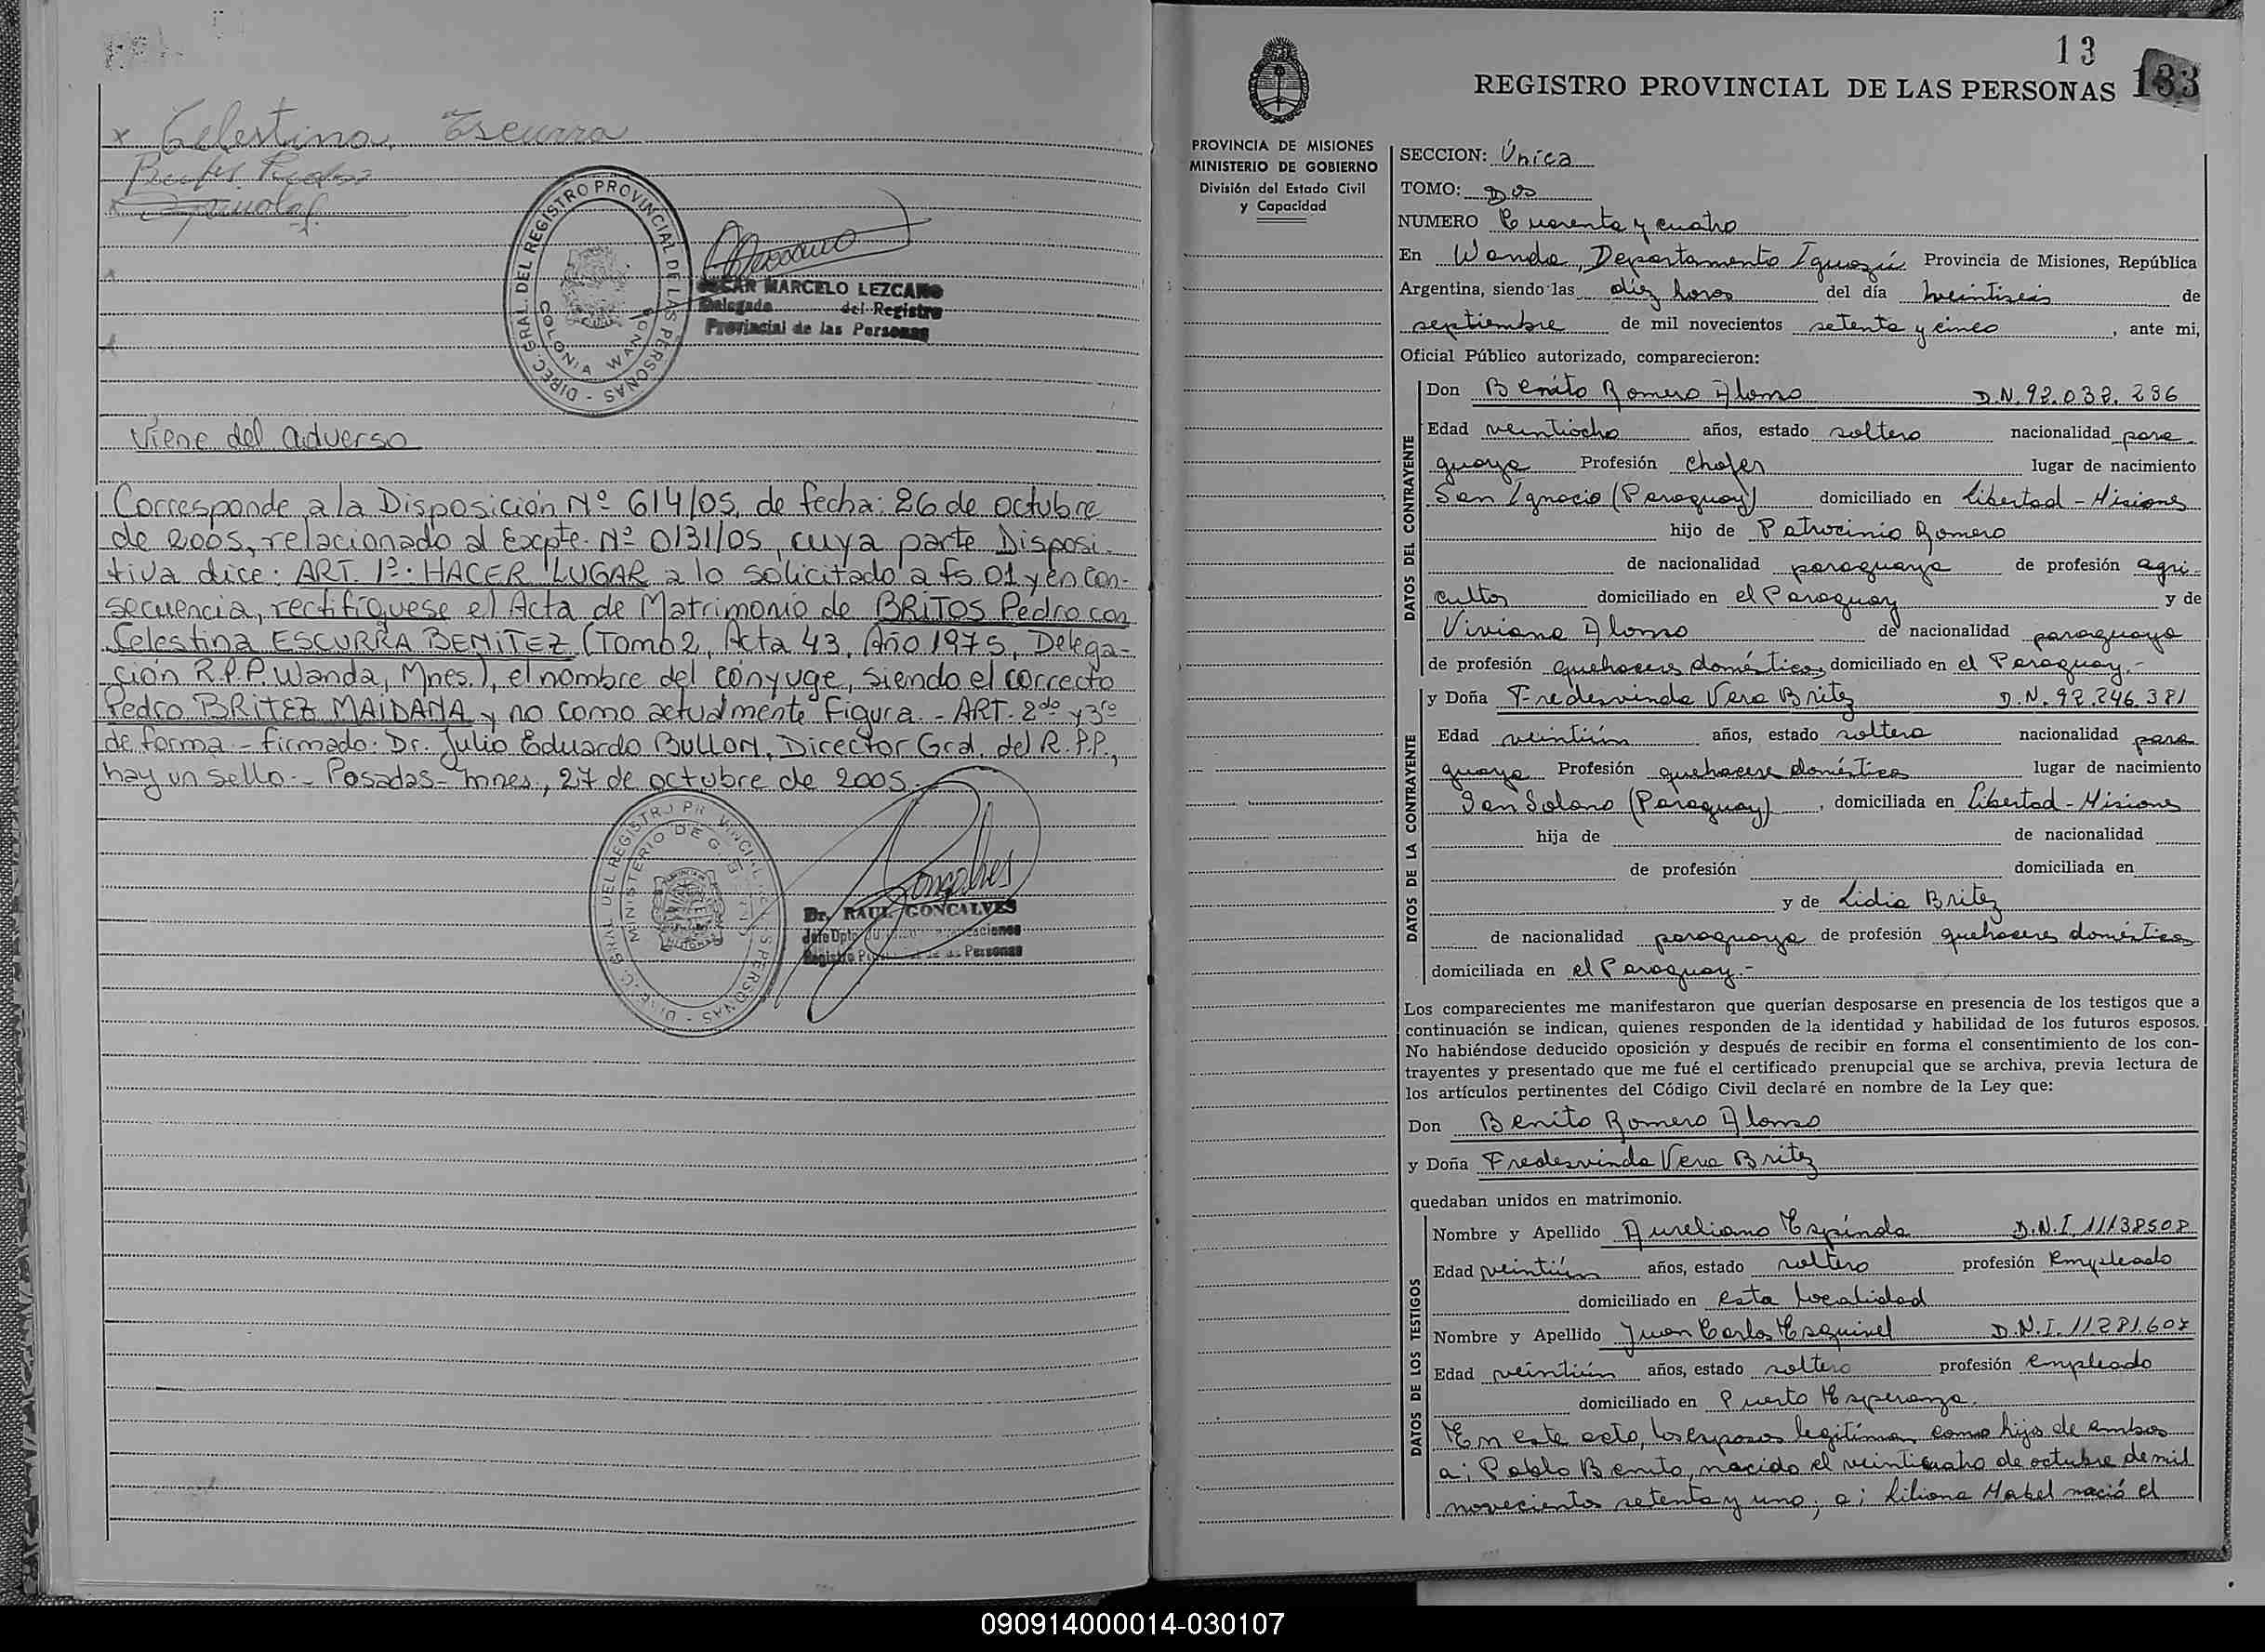 Celestina Escurra
DIREC. GRAL. DEL REGISTRO PROVINCIAL DE LAS PERSONAS -
COLONIA WANDA
OSCAR MARCELO LEZCANO
Delegado del Registro
Provincial de las Personas
Viene del adverso
Corresponde a la Disposición Nº 614/05, de fecha: 26 de octubre
de 2005, relacionado al Expte. Nº 0131/05, cuya parte Disposi-
tiva dice: ART. 1º. HACER LUGAR a lo solicitado a fs 01 y en con-
secuencia, rectifíquese el Acta de Matrimonio de BRITOS Pedro con
Celestina ESCURRA BENITEZ (Tomo 2, Acta 43, Año 1975, Delega-
ción R.P.P. Wanda, Mnes.), el nombre del cónyuge, siendo el correcto
Pedro BRITEZ MAIDANA y no como actualmente figura.- ART. 2do y 3ro
de forma.- firmado: Dr. Julio Eduardo BULLON, Director Gral. del R.P.P.,
hay un sello.- Posadas- mnes., 27 de octubre de 2005.
DIREC. GRAL. DEL REGISTRO PROVINCIAL DE LAS PERSONAS -
MINISTERIO DE GOBIERNO
Dr. RAUL GONCALVES
13
REGISTRO PROVINCIAL DE LAS PERSONAS 133
PROVINCIA DE MISIONES
MINISTERIO DE GOBIERNO
División del Estado Civil
y Capacidad
SECCION: Única
TOMO: Dos
NUMERO Cuarenta y cuatro
En Wanda, Departamento Iguazú Provincia de Misiones, República
Argentina, siendo las diez horas del día veintiseis de
septiembre de mil novecientos setenta y cinco, ante mi,
Oficial Público autorizado, comparecieron:
DATOS DEL CONTRAYENTE
Don Benito Romero Alonso D.N. 92.032.286
Edad veintiocho años, estado soltero nacionalidad para
guaya Profesión chofer lugar de nacimiento
San Ignacio (Paraguay) domiciliado en Libertad - Misiones
hijo de Patrocinio Romero
de nacionalidad paraguaya de profesión agri-
cultor domiciliado en el Paraguay y de
Viviana Alonso de nacionalidad paraguaya
de profesión quehaceres domésticos domiciliado en el Paraguay.-
DATOS DE LA CONTRAYENTE
y Doña Fredesvinda Vera Britez D.N. 92.246.381
Edad veintiún años, estado soltera nacionalidad para
guaya Profesión quehaceres domésticos lugar de nacimiento
San Solano (Paraguay), domiciliada en Libertad - Misiones
hija de de nacionalidad
de profesión domiciliada en
y de Lidia Britez
de nacionalidad paraguaya de profesión quehaceres domésticos
domiciliada en el Paraguay.-
Los comparecientes me manifestaron que querían desposarse en presencia de los testigos que a
continuación se indican, quienes responden de la identidad y habilidad de los futuros esposos.
No habiéndose deducido oposición y después de recibir en forma el consentimiento de los con-
trayentes y presentado que me fué el certificado prenupcial que se archiva, previa lectura de
los artículos pertinentes del Código Civil declaré en nombre de la Ley que:
Don Benito Romero Alonso
y Doña Fredesvinda Vera Britez
quedaban unidos en matrimonio.
DATOS DE LOS TESTIGOS
Nombre y Apellido Aureliano Espínda D.N.I. 11138508
Edad veintiún años, estado soltero profesión Empleado
domiciliado en esta localidad
Nombre y Apellido Juan Carlos Esquivel D.N.I. 11281607
Edad veintiún años, estado soltero profesión empleado
domiciliado en Puerto Esperanza.
En este acto, los esposos legitiman como hijos de ambos
a: Pablo Benito, nacido el veinticuatro de octubre de mil
novecientos setenta y uno; a: Liliana Mabel nació el
090914000014-030107